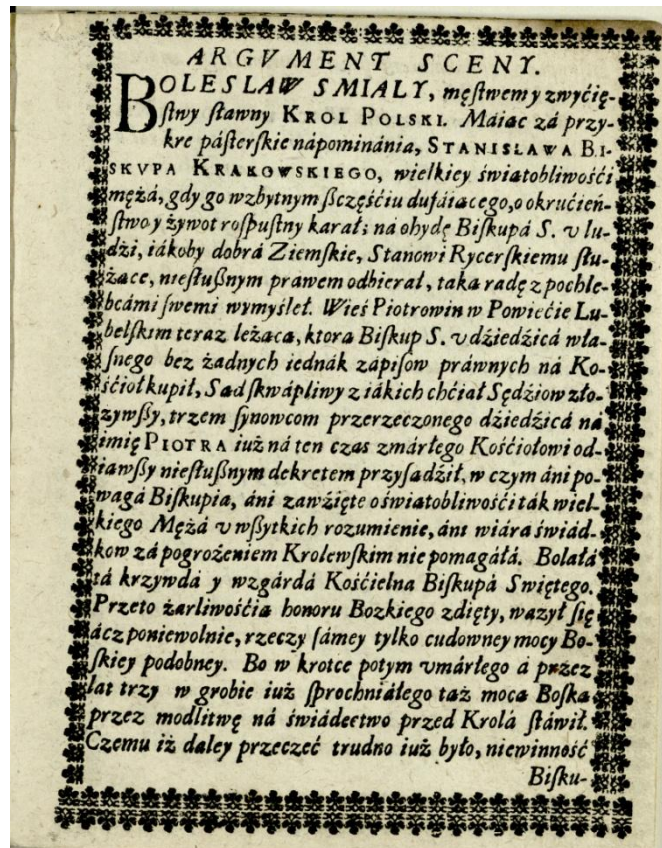 ARGVMENT SCENY.
BOLESLAW SMIALY, męſtwem y zwyćię-
ſtwy ſławny KROL POLSKI. Maiac zá przy-
kre páſterſkie nápominánia, STANISŁAWA BI-
SKVPA KRAKOWSKIEGO, wielkiey świątobliwośći
mężá, gdy go w zbytnym ſzczęśćiu dufáiącego, o okrućień-
ſtwo y żywot roſpuſtny karał; ná ohydę Biſkupá S. v lu-
dźi, iákoby dobrá Ziemſkie, Stanowi Rycerſkiemu ſłu-
żące, nieſłuſznym prawem odbierał, taka radę z pochle-
bcámi ſwemi wymyśleł. Wieś Piotrowin w Powiećie Lu-
belſkim teraz leżaca, ktora Biſkup S. v dźiedźicá wła-
ſnego bez żadnych iednák zápiſow práwnych ná Ko-
śćioł kupił, Sąd ſkwápliwy z iákich chćiał Sędźiow zło-
zywſzy, trzem ſynowcom przerzeczonego dźiedźicá ná
imię PIOTRA iuż ná ten czas zmárłego Kośćiołowi od-
iawſzy nieſłuſznym dekretem przyſądźił, w czym áni po-
wagá Biſkupia, áni zawźięte o świątobliwośći ták wiel-
kiego Mężá v wſzytkich rozumienie, áni wiára świád-
kow zá pogrożeniem Krolewſkim nie pomagáłá. Bolałá
tá krzywdá y wzgárdá Kośćielna Biſkupá Swiętego.
Przeto żarliwośćia honoru Bozkiego zdięty, wazył się
ácz poniewolnie, rzeczy ſámey tylko cudowney mocy Bo-
ſkiey podobney. Bo w krotce potym vmárłego á przez
lat trzy w grobie iuż ſprochniáłego tąż mocą Boſką
przez modlitwę ná świádectwo przed Krolá ſtáwił.
Czemu iż daley przeczeć trudno iuż było, niewinność
Biſku-